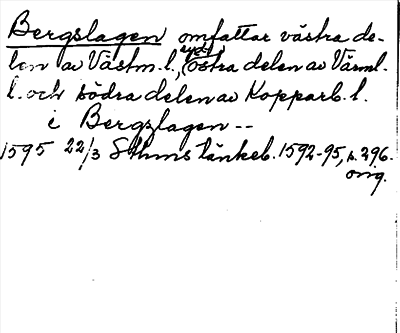 Bergslagen omfattar västra de-
len av Västm.l., sydöstra delen av Värml.
l. och södra delen av Kopparb. l.
i Bergzlagen --
1595 22/3 Sthms tänkeb. 1592-95, s. 296.
orig.